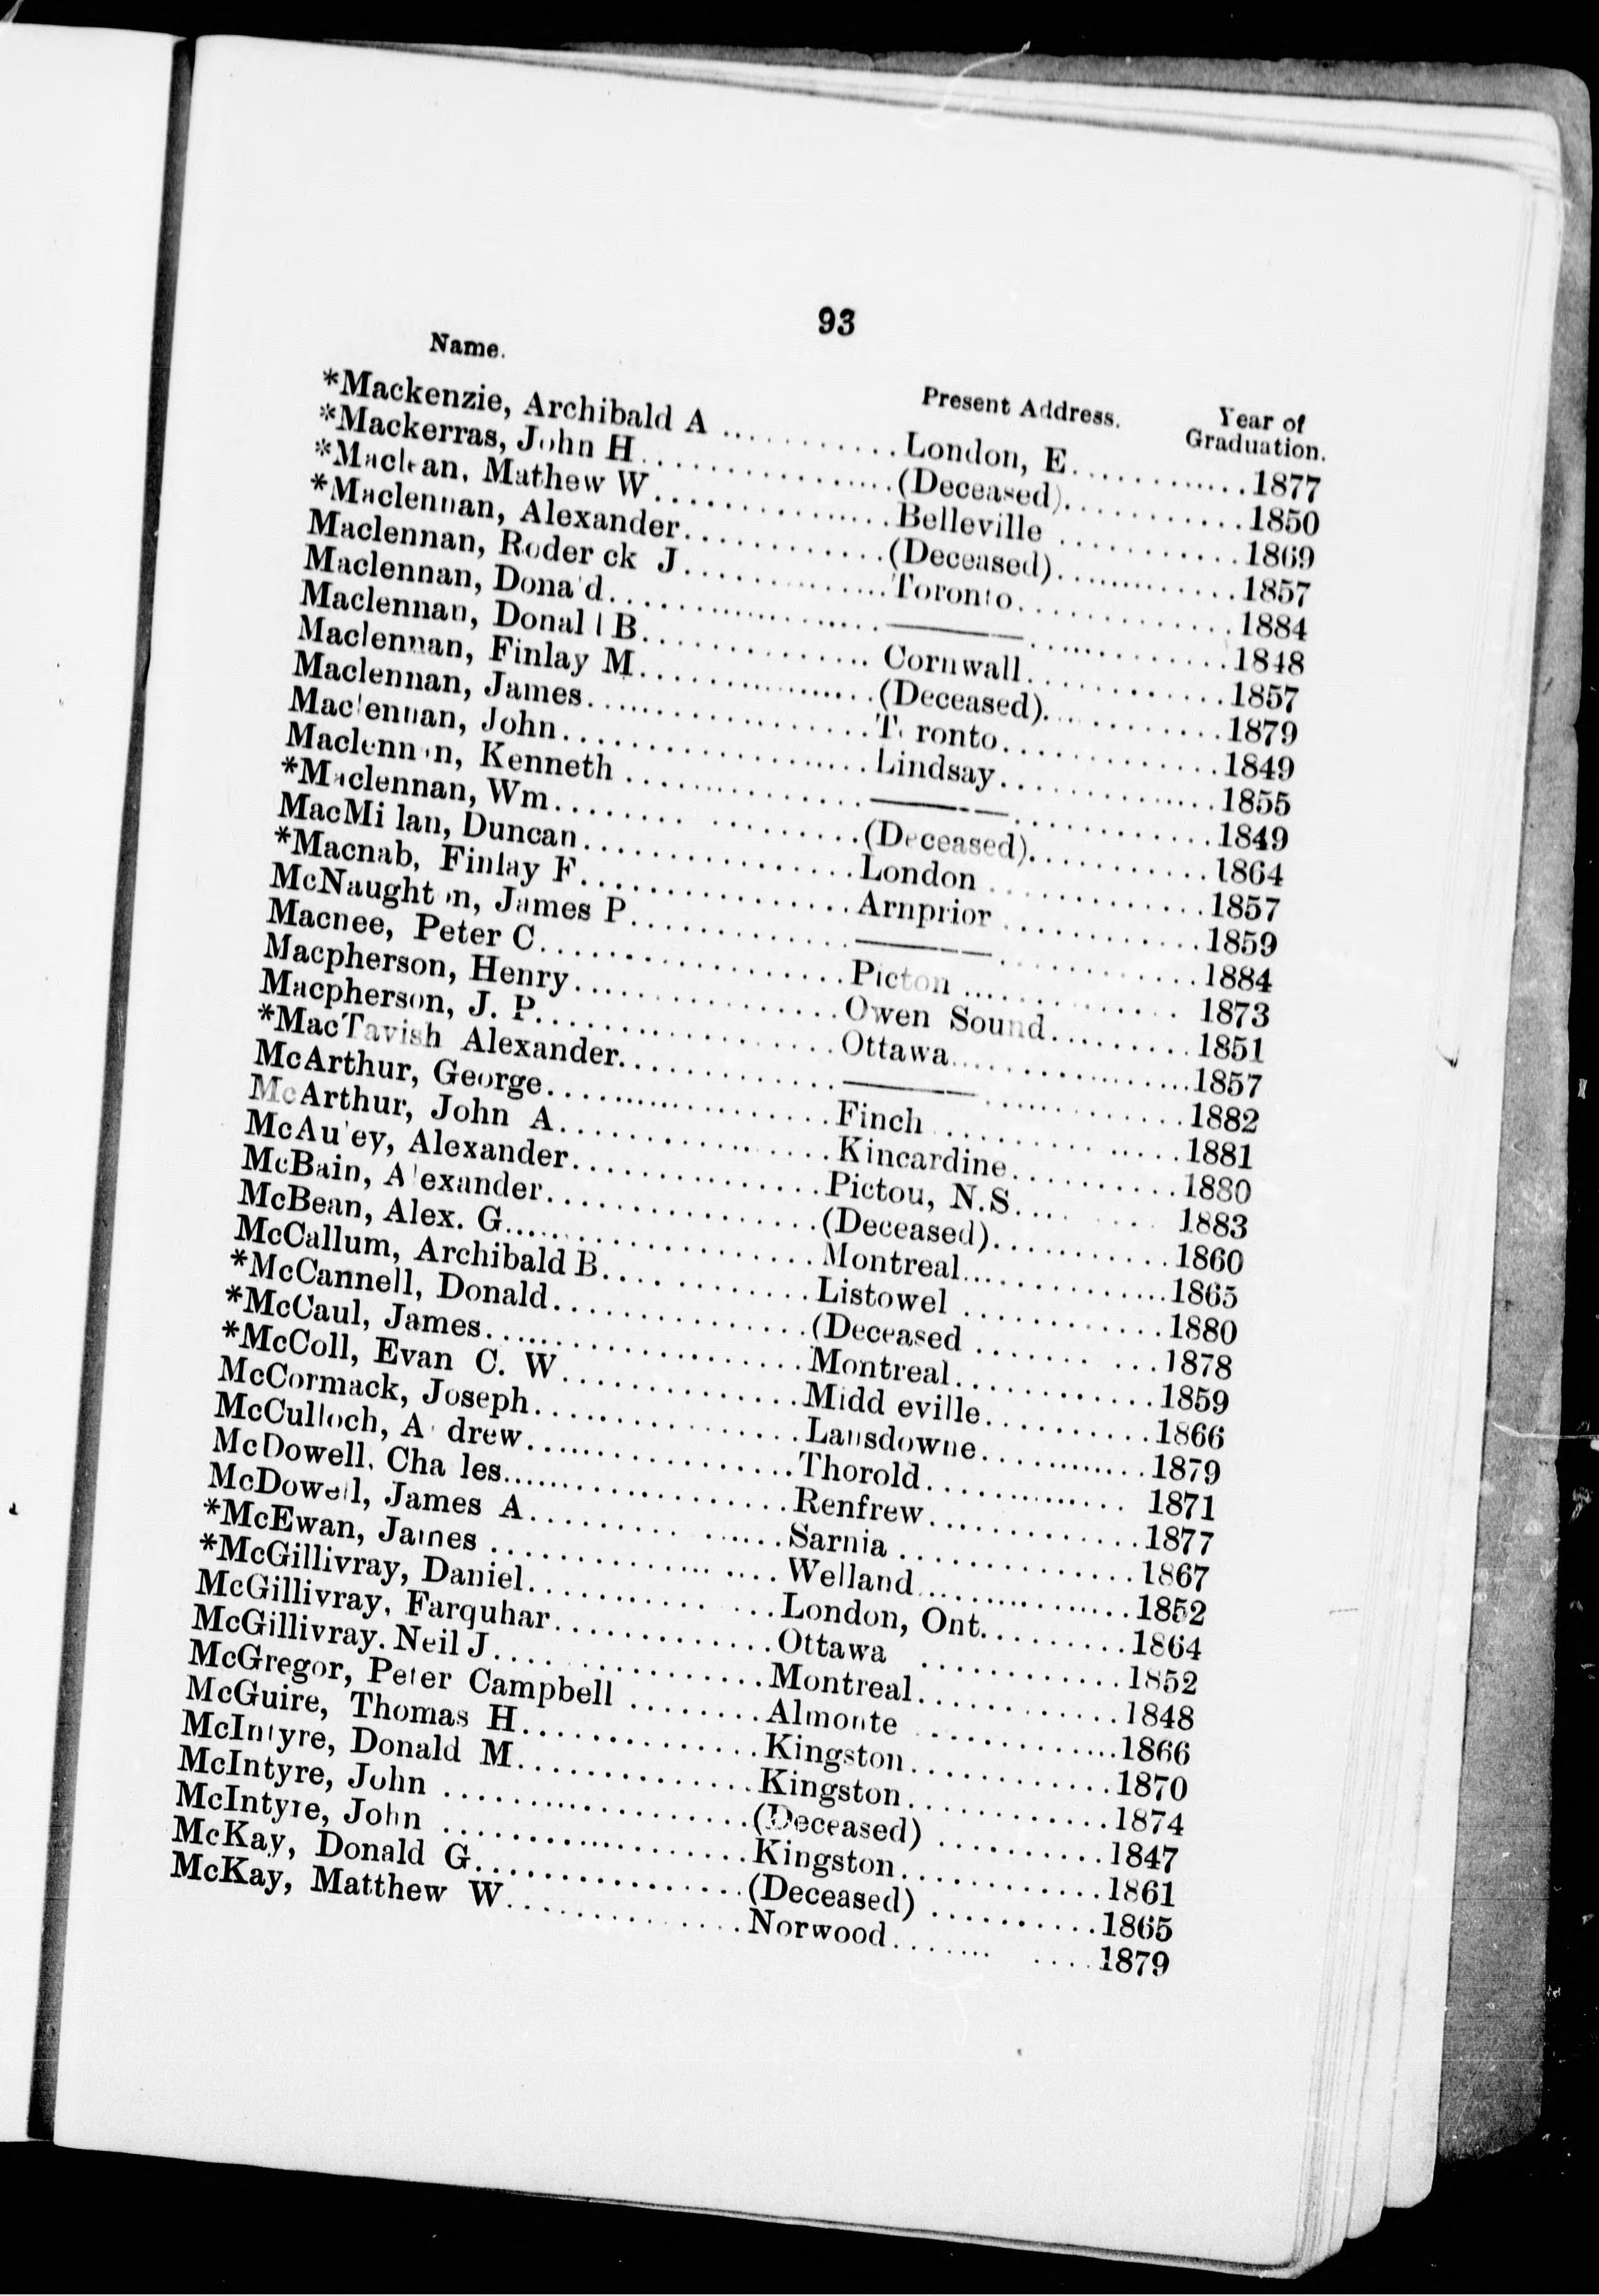 93
Name. Present Address. Year of Graduation.
*Mackenzie, Archibald A .......... London, E .......... 1877
*Mackerras, John H .......... (Deceased) .......... 1850
*Maclean, Mathew W .......... Belleville .......... 1869
*Maclennan, Alexander .......... (Deceased) .......... 1857
Maclennan, Roderick J .......... Toronto .......... 1884
Maclennan, Donald .......... ——— .......... 1848
Maclennan, Donald B .......... Cornwall .......... 1857
Maclennan, Finlay M .......... (Deceased) .......... 1879
Maclennan, James .......... Toronto .......... 1849
Maclennan, John .......... Lindsay .......... 1855
Maclennan, Kenneth .......... ——— .......... 1849
*Maclennan, Wm .......... (Deceased) .......... 1864
MacMillan, Duncan .......... London .......... 1857
*Macnab, Finlay F .......... Arnprior .......... 1859
McNaughton, James P .......... ——— .......... 1884
Macnee, Peter C .......... Picton .......... 1873
Macpherson, Henry .......... Owen Sound .......... 1851
Macpherson, J. P. .......... Ottawa .......... 1857
*MacTavish Alexander .......... ——— .......... 1882
McArthur, George .......... Finch .......... 1881
McArthur, John A .......... Kincardine .......... 1880
McAuley, Alexander .......... Pictou, N.S. .......... 1883
McBain, Alexander .......... (Deceased) .......... 1860
McBean, Alex. G .......... Montreal .......... 1865
McCallum, Archibald B .......... Listowel .......... 1880
*McCannell, Donald .......... (Deceased .......... 1878
*McCaul, James .......... Montreal .......... 1859
*McColl, Evan C. W .......... Middleville .......... 1866
McCormack, Joseph .......... Lansdowne .......... 1879
McCulloch, Andrew .......... Thorold .......... 1871
McDowell, Charles .......... Renfrew .......... 1877
McDowell, James A .......... Sarnia .......... 1867
*McEwan, James .......... Welland .......... 1852
*McGillivray, Daniel .......... London, Ont. .......... 1864
McGillivray, Farquhar .......... Ottawa .......... 1852
McGillivray. Neil J .......... Montreal .......... 1848
McGregor, Peter Campbell .......... Almonte .......... 1866
McGuire, Thomas H .......... Kingston .......... 1870
McIntyre, Donald M .......... Kingston .......... 1874
McIntyre, John .......... (Deceased) .......... 1847
McIntyre, John .......... Kingston .......... 1861
McKay, Donald G .......... (Deceased) .......... 1865
McKay, Matthew W .......... Norwood .......... 1879